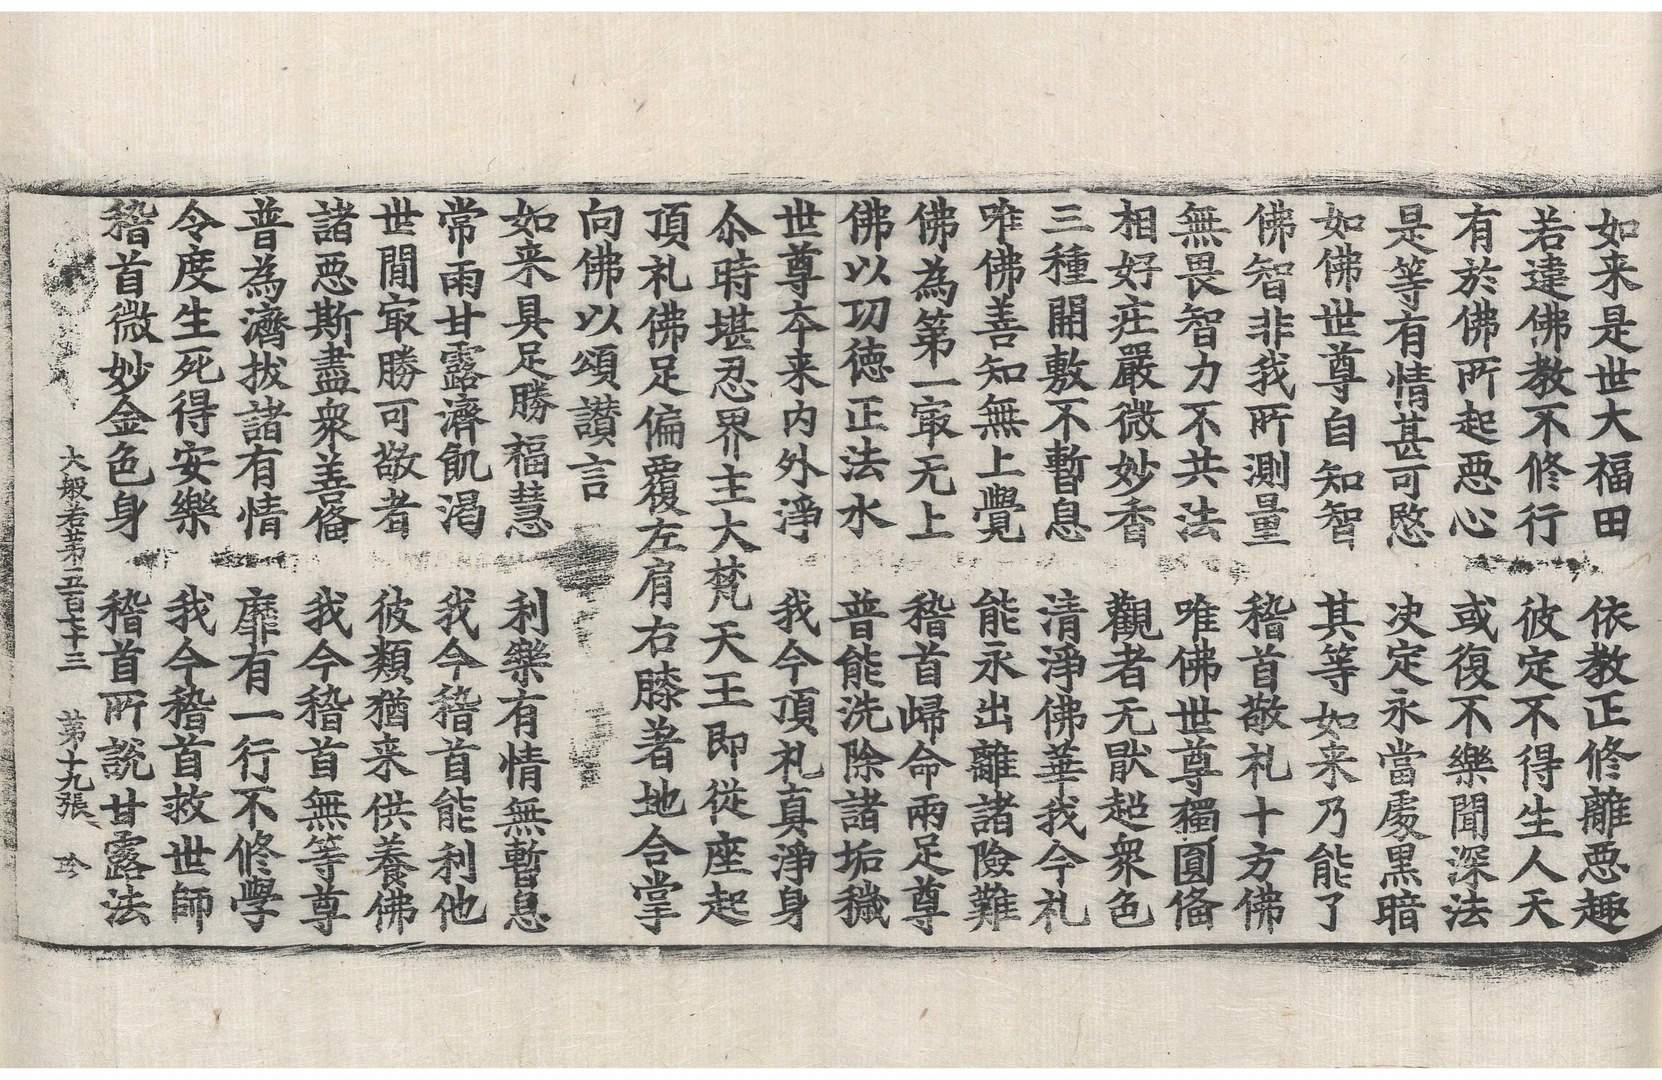 如来是世大福田　依教正修離惡趣
若違佛教不修行　彼定不得生人天
有於佛所起惡心　或復不樂聞深法
是等有情甚可愍　决定永當處黑暗
如佛世尊自知智　其等如来乃能了
佛智非我所測量　稽首敬礼十方佛
無畏智力不共法　唯佛世尊獨圓俻
相好荘嚴微妙香　觀者无猒超衆色
三種開敷不暫息　清淨佛華我今礼
唯佛善知無上覺　能永出離諸險難
佛為第一㝡无上　稽首歸命兩足尊
佛以功德正法水　普能洗除諸垢穢
世尊夲来内外淨　我今頂礼真淨身
尒時堪忍界主大梵天王即從座起
頂礼佛足偏覆左肩右膝著地合掌
向佛以頌讃言
如来具足勝福慧　利樂有情無暫息
常雨甘露濟飢渴　我今稽首能利他
世閒㝡勝可敬者　彼類猶来供養佛
諸惡斯盡衆善俻　我今稽首無等尊
普為濟拔諸有情　靡有一行不修學
令度生死得安樂　我今稽首救世師
稽首微妙金色身　稽首所説甘露法
大般若苐五百七十三　苐十九張　珎